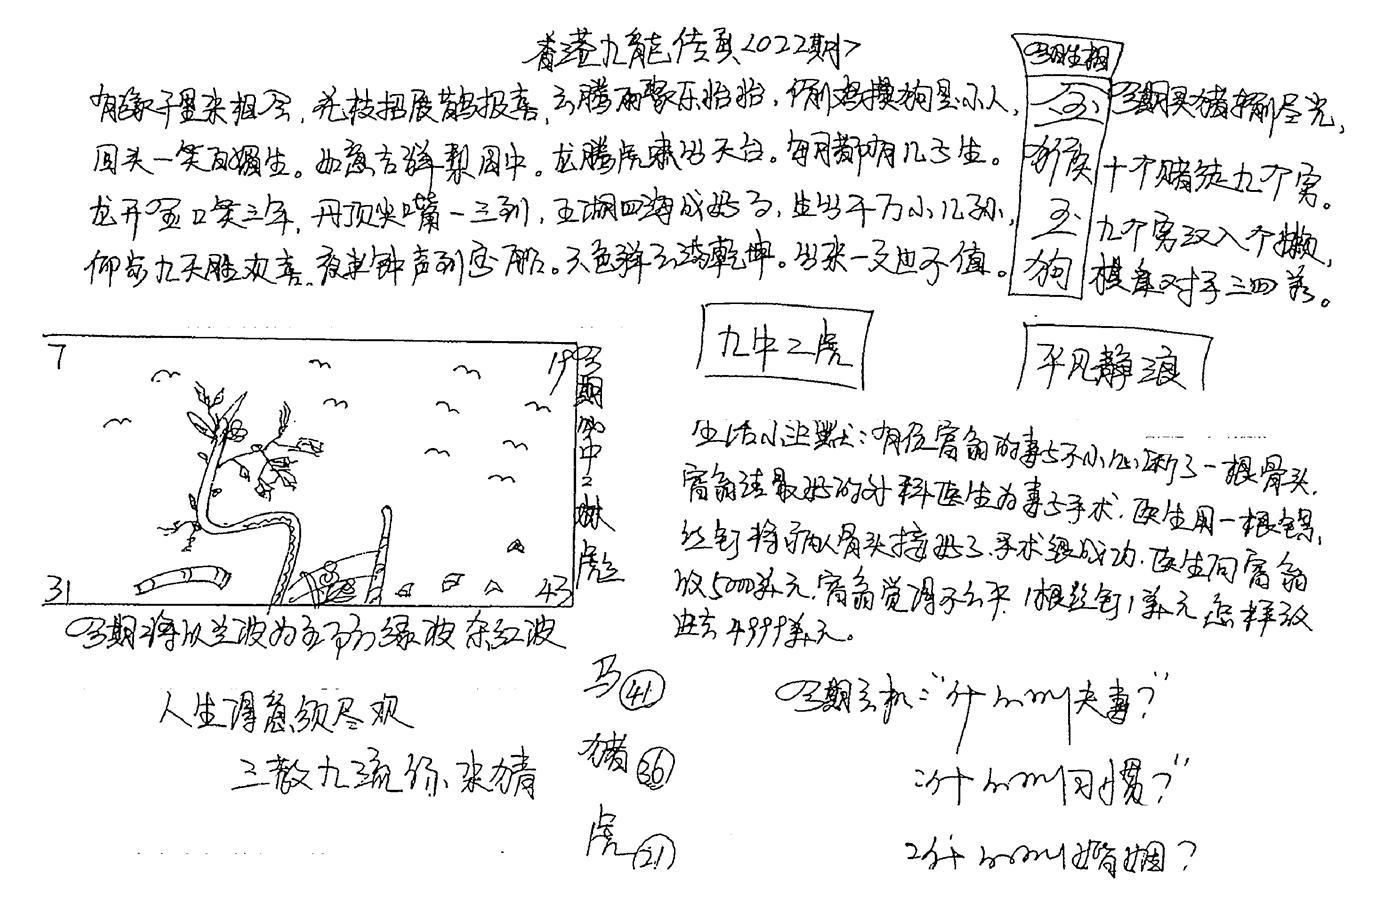 香港九龍传真<022期>
有缘千里来相会，花枝招展鹊报喜，云腾雨聚乐怡怡，偷鸡摸狗是小人，
回头一笑百媚生。如意吉祥梨园中。龙腾虎啸出天台。每月都有几号生。
龙开金口笑三年，丹顶尖嘴一三到，五湖四海成好了，生出千万小儿孙，
仰步九天胜欢喜。夜半钟声到客船。天色祥云满乾坤。出来一文也不值。
另期生相
玉
猴
玉
狗
另期买猪输尽光，
十个赌徒九个穷。
九个穷汉八个懒，
棋桌对手三四盖。
7
19
31
43
另期必中二肖虎兔
九中二虎
平风静浪
生活小幽默：有位富翁的妻子不小心断了一根骨头，
富翁请最好的外科医生为妻子手术，医生用一根螺
丝钉将病人骨头接好了，手术很成功，医生向富翁
收5000美元，富翁觉得不公平，1根丝钉1美元怎样收
出去4999美元。
另期将以兰波为主防绿波杂红波
人生得意须尽欢
三教九流你来猜
马 41
猪 36
虎 21
另期玄机："什么叫夫妻？"
"什么叫习惯？"
2什么叫婚姻？